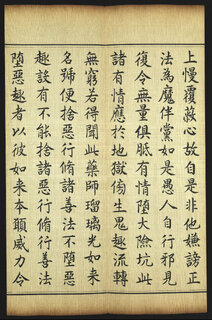 上慢覆蔽心故自是非他嫌謗正
法為魔伴黨如是愚人自行邪見
復令無量俱胝有情墮大險坑此
諸有情應於地獄傍生鬼趣流轉
無窮若得聞此藥師瑠璃光如来
名號便捨惡行脩諸善法不墮惡
趣設有不能捨諸惡行脩行善法
墮惡趣者以彼如来本願威力令